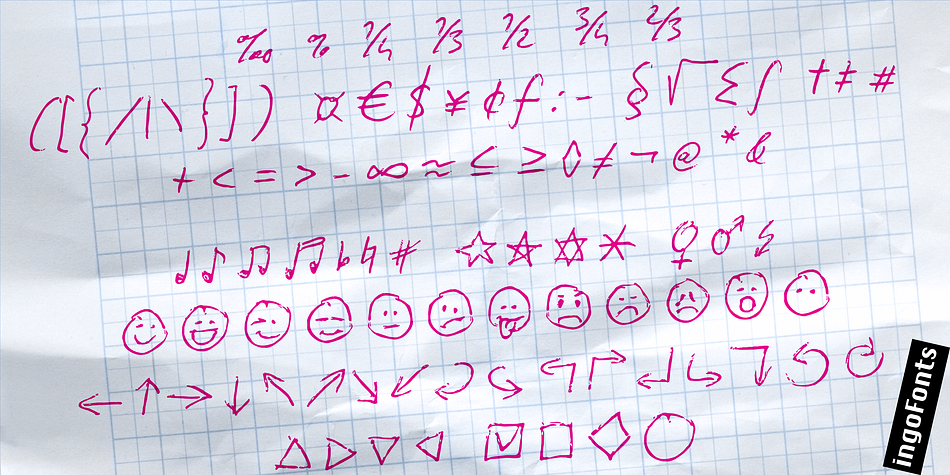 ‰ % ¼ ⅓ ½ ¾ ⅔
([{/|\}]) ¤€$¥¢ƒ:- §√Σ∫ †‡#
+<=>-∞≈≤≥◊≠¬@*&
♪♪♫♫♭♮# ☆★✡* ♀♂
←↑→↓↖↗↘↙
△▷▽◁ □◇○
ingoFonts